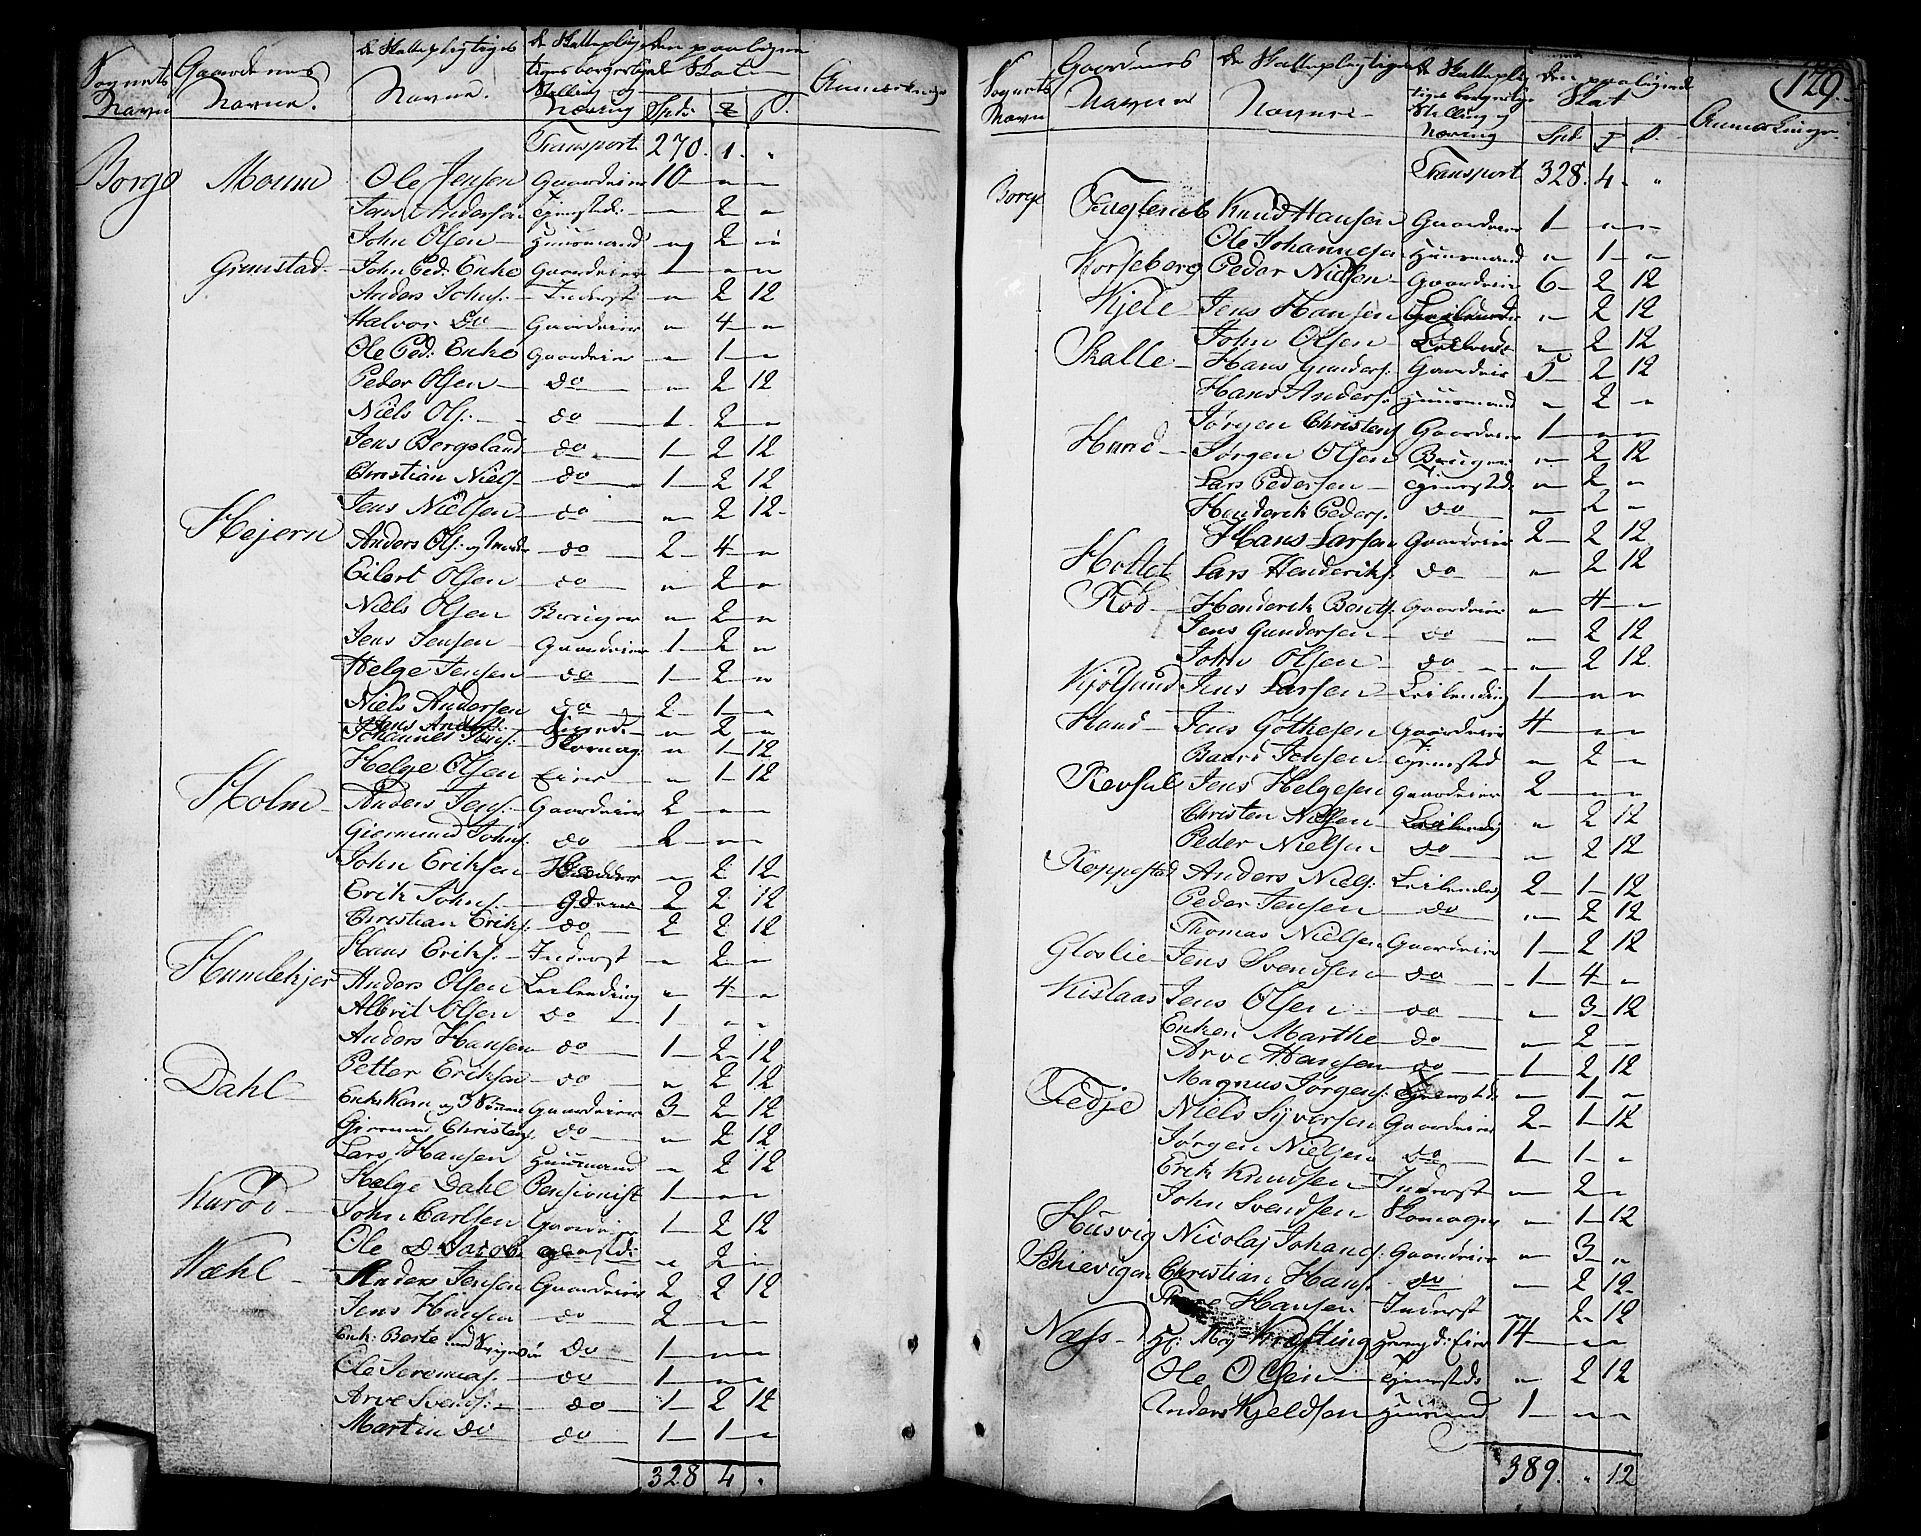 Sognets Navn Gaardenes Navne. de Skattepligtiges Navne. de Skattepligtiges borgerlige Stilling og Næring den paaligne Skat Spd: ß. Anmærkninge
Transport. 270. 1. "
Borge Moum Ole Jensen Gaardeier 10 " "
Andersen Tjenested: " 2 "
John Olsen Huusmand " 2 "
Grimstad John Ped: Enke Gaardeier 1 " "
Anders Johns: Inderst " 2 12
Halvor Do Gaardeier " 4 "
Ole Ped: Enke Gaardeier " 1 "
Peder Olsen do " 2 12
Niels Ols: do 1 2 "
Jens Bergsland do 1 2 12
Christian Niels do 1 2 12
Jens Nielsen do " 2 12
Hejern Anders Ols: og do 2 4 "
Eilert Olsen do " 2 "
Niels Olsen Bruger " 2 "
Jens Jensen Gaardeier 1 2 "
Helge Jensen do 1 2 "
Niels Andersen do 2 1 "
Jens " 2 "
Johannes Jens: Skomag: " 1 12
Helge Olsen Eier " 1 12
Holm Anders Jens: Gaardeier 2 " "
Giermund Johns: do 2 " "
John Eriksen " 2 12
Erik Johns: Gdeier 2 2 12
Christian Eriks: do 2 2 12
Hans Eriks: Inderst " 2 "
Humlekjer Anders Olsen Leilending " 4 "
Albrit Olsen Do 1 " "
Anders Hansen do 1 2 12
Petter Eriksen do " 2 12
Dahl Enke Karn og 3 Sønner Gaardeier 3 2 12
Giermund Christens: do " 2 12
Lars Hansen Huusmand " 2 12
Helge Dahl Pensionist 1 " "
Kurød John Carlsen Gaardeier 1 2 12
Ole D. Jacob Tjenestd: " 2 "
Wæhl Anders Jensen Gaardeier 2 2 12
Jens Hansen do 2 " "
Enk: Berte Do 1 " "
Ole Jeremias: do 1 " "
Arve Svends: do 1 2 12
Martin Do do 1 1 "
328 4 "
129.
Sognets Navn Gaardenes Navne de Skattepligtiges Navne de Skattepligtiges borgerlige Stilling og Næring den paalignede Skat Spd ß. Anmærkninger
Transport 328. 4. "
Borge Fuglevik Knud Hansen Gaardeier 1 " "
Ole Johannesen Huusmand " 1 "
Korseberg Peder Nielsen Gaardeier 6 2 12
Kjele Jens Hansen Leilending " 2 12
John Olsen Leilend: " 2 12
Skalle Hans Gunders: Gaardeier 5 2 12
Hans Anders: Huusmand " 2 "
Jørgen Christens Gaardeier 1 " "
Hunn Jørgen Olsen Bruger " 2 12
Lars Pedersen Tjenested: " 2 "
Henderik Peders: do " 2 "
Hans Larsen Gaardeier 2 2 12
Holtet Lars Henderiks: do " 2 12
Rød Henderik Bents: Gaardeier " 4 "
Jens Gundersen do " 2 12
John Olsen do " 2 12
Kjølsund Jens Larsen Leilending 1 " "
Haud Jens Gothesen Gaardeier 4 " "
Baard Jensen Tjenested " 2 "
Revsal Jens Helgesen Gaardeier 2 " "
Christen Nilsen Leilending " 2 12
Peder Nielsen do " 2 12
Roppestad Anders Niels: Leilending 2 1 12
Peder Jensen do " 2 12
Thomas Nielsen Gaardeier 1 2 12
Gloslie Jens Svendsen do 1 4 "
Kislaas Jens Olsen do " 3 12
Enken Marthe do " 2 "
Arve Hansen do 1 2 12
Magnus Jørgens: Tjenested: " 1 "
Fedje Niels Syversen Gaardeier 2 1 12
Jørgen Nielsen do 1 1 "
Erik Knudsen Inderst " 2 "
John Svendsen Skomager " 1 12
Husvig Nicolaj Johans: Gaardeier " 3 "
Schievigen Christian Hans: do " 2 12
Hansen Inderst " 2 12
Næss Hr: Maj Krefting Eier 14 " "
Ole Olsen Tjenested: " 2 12
Anders Kjeldsen Huusmd 1 " "
389. " 12